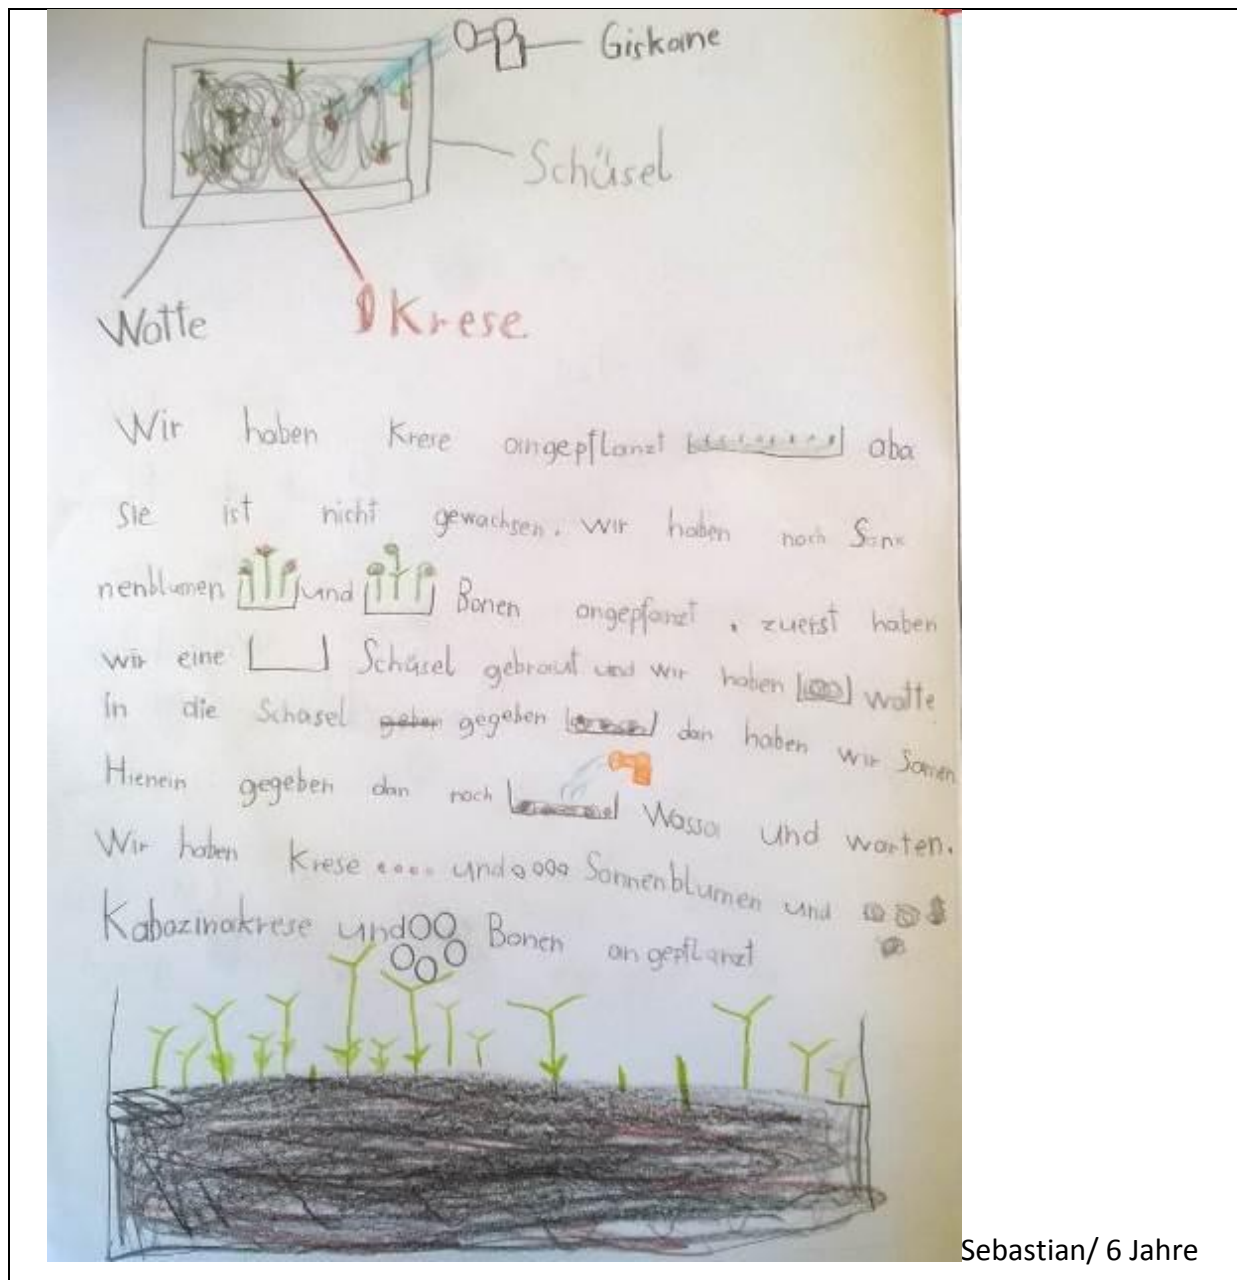 Giskane
Schüsel
Watte
Krese
Wir haben Krese angepflanzt aba
Sie ist nicht gewachsen. Wir haben noch Sonn
nenblumen und Bonen angepfanzt. zuerst haben
wir eine Schüsel gebraut und wir haben watte
in die Schüsel geben gegeben dan haben wir Samen
Hienein gegeben dan noch Wassa und warten.
Wir haben Krese und Sonnenblumen und
Kabozinakrese und Bonen angepflanzt
Sebastian/ 6 Jahre